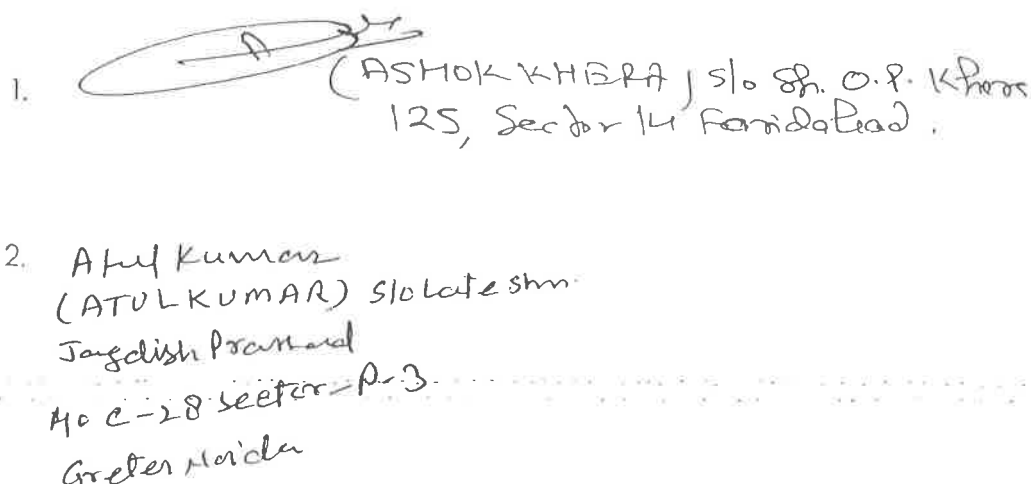 1.
(ASHOK KHERA) S/o Sh. O.P. Khera
125, Sector 14 Faridabad.
2. Atul Kumar
(ATUL KUMAR) S/o Late Shri
Jagdish Prashad
C-28 Seeter-P-3.
Greter Noida